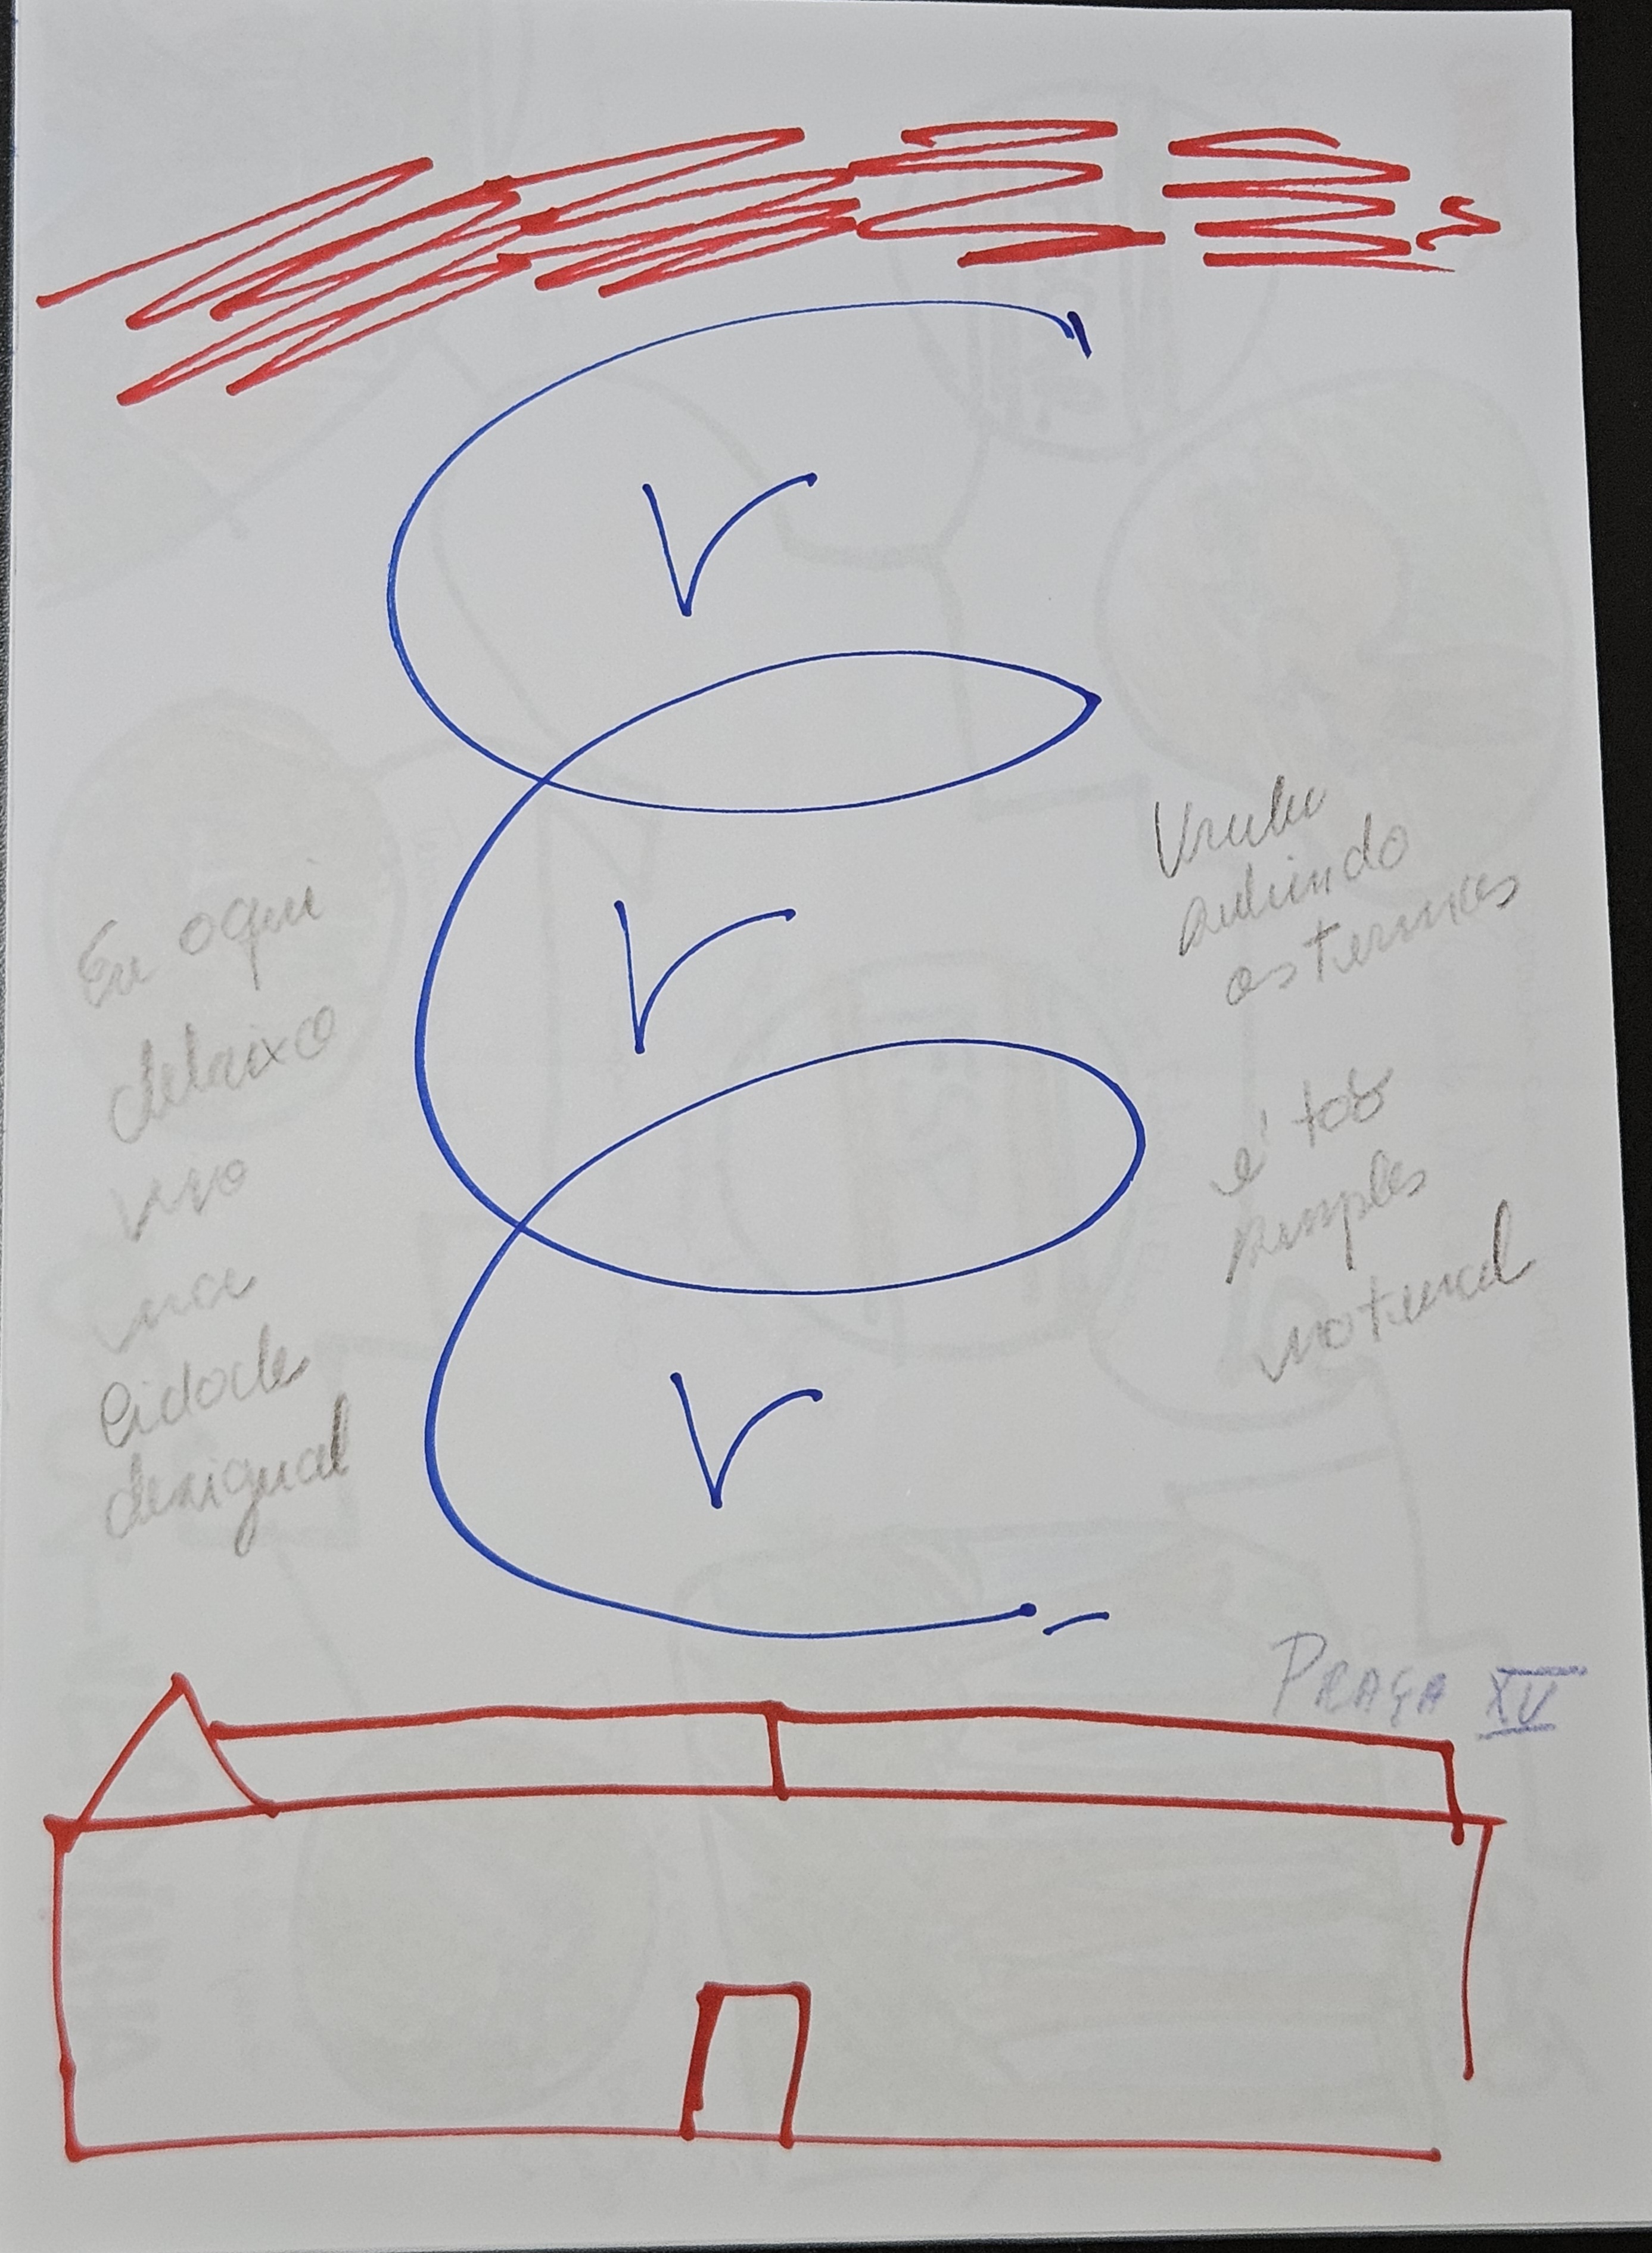 Eu aqui
debaixo
vivo
na
cidade
desigual
Urubu
subindo
as termicas
é tão
simples
natural
PRAÇA XV